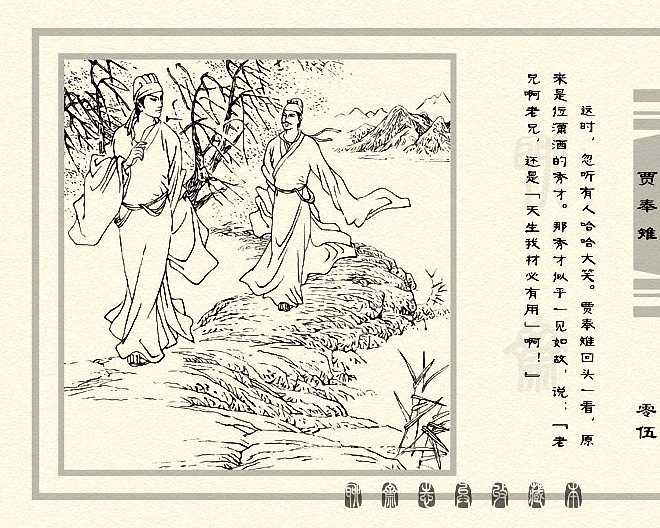 这时，忽听有人哈哈大笑。贾奉雉回头一看，原
来是位潇洒的秀才。那秀才似乎一见如故，说：「老
兄啊老兄，还是「天生我材必有用」啊！」
贾奉雉
零伍
聊斋志异收藏本